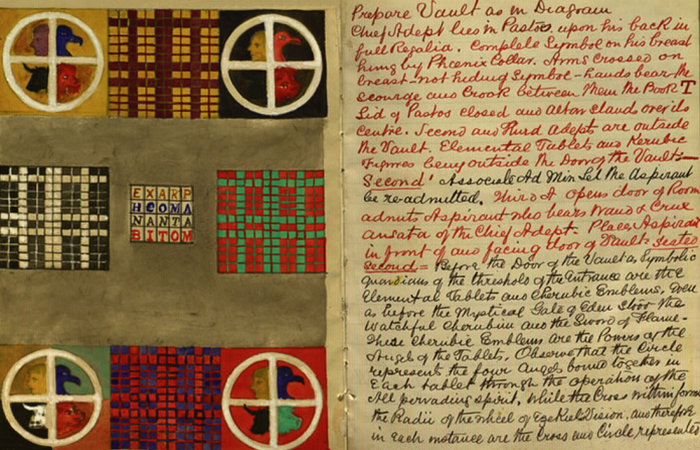 EXARP
HCOMA
NANTA
BITOM
Prepare Vault as in Diagram
Chief Adept lies in Pastos, upon his back in
full Regalia. Complete Symbol on his breast
hung by Phoenix Collar. Arms crossed on
breast not hiding Symbol - hands bear the
scourge and Crook between them the Book T
Lid of Pastos closed and Altar stands over its
centre. Second and Third Adepts are outside
the Vault. Elemental Tablets and Kerubic
Figures being outside the Door of the Vault.
Second' Associate Ad Min let the Aspirant
be re-admitted. Third A opens door of Room
admits Aspirant who bears Wand & Crux
ansata of the Chief Adept - Places Aspirant
in front of and facing door of Vault. Seated
Second = Before the Door of the Vault as Symbolic
guardians of the threshold of the Entrance are the
Elemental Tablets and Cherubic Emblems, Even
as before the Mystical Gate of Eden stood the
Watchful Cherubim and the Sword of Flame -
These Cherubic Emblems are the Powers of the
Angels of the Tablets, Observe that the Circle
represents the four Angels bound together in
Each tablet through the operation of the
All pervading spirit, while the Cross within forms
the Radii of the Wheel of Ezekiel's Vision, and therefore
in each instance are the Cross and Circle represented